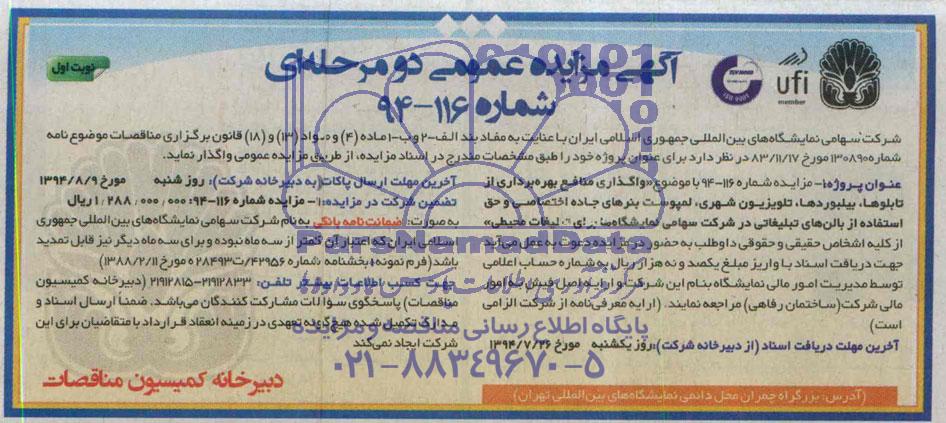 نوبت اول
آگهی مزایده عمومی دو مرحله‌ای
شماره ۱۱۶-۹۴
ufi
member
ISO 9001
شرکت سهامی نمایشگاه‌های بین‌المللی جمهوری اسلامی ایران با عنایت به مفاد بند الف-۲ و ب-۱ ماده (۴) و مواد (۱۳) و (۱۸) قانون برگزاری مناقصات موضوع نامه
شماره ۱۳۰۸۹۰ مورخ ۸۳/۱۱/۱۷ در نظر دارد برای عنوان پروژه خود را طبق مشخصات مندرج در اسناد مزایده، از طریق مزایده عمومی واگذار نماید.
عنوان پروژه: ۱- مزایده شماره ۱۱۶-۹۴ با موضوع «واگذاری منافع بهره‌برداری از
تابلوها، بیلبوردها، تلویزیون شهری، لمپوست بنرهای جاده اختصاصی و حق
استفاده از بالن‌های تبلیغاتی در شرکت سهامی نمایشگاه‌ها برای تبلیغات محیطی»
از کلیه اشخاص حقیقی و حقوقی داوطلب به حضور در مزایده دعوت به عمل می‌آید
جهت دریافت اسناد با واریز مبلغ یکصد و نه هزار ریال به شماره حساب اعلامی
توسط مدیریت امور مالی نمایشگاه بنام این شرکت و ارایه اصل فیش به امور
مالی شرکت (ساختمان رفاهی) مراجعه نمایند. (ارایه معرفی‌نامه از شرکت الزامی
است)
آخرین مهلت دریافت اسناد (از دبیرخانه شرکت): روز یکشنبه مورخ ۱۳۹۴/۷/۲۶
آخرین مهلت ارسال پاکات (به دبیرخانه شرکت): روز شنبه مورخ ۱۳۹۴/۸/۹
تضمین شرکت در مزایده: ۱- مزایده شماره ۱۱۶-۹۴: ۱٬۲۸۸٬۰۰۰٬۰۰۰ ریال
به صورت: ضمانت‌نامه بانکی به نام شرکت سهامی نمایشگاه‌های بین‌المللی جمهوری
اسلامی ایران که اعتبار آن کمتر از سه ماه نبوده و برای سه ماه دیگر نیز قابل تمدید
باشد (فرم نمونه: بخشنامه شماره ۴۲۹۵۶/ت۲۸۴۹۳ ه مورخ ۱۳۸۸/۲/۱۱)
جهت کسب اطلاعات بیشتر تلفن: ۲۱۹۱۲۸۳۳-۲۱۹۱۲۸۱۵ (دبیرخانه کمیسیون
مناقصات) پاسخگوی سؤالات مشارکت کنندگان می‌باشد. ضمناً ارسال اسناد و
مدارک تکمیل شده هیچ‌گونه تعهدی در زمینه انعقاد قرارداد با متقاضیان برای این
شرکت ایجاد نمی‌کند
دبیرخانه کمیسیون مناقصات
آدرس: بزرگراه چمران محل دائمی نمایشگاه‌های بین‌المللی تهران)
ParsNamadData
پایگاه اطلاع رسانی مناقصه و مزایده
۰۲۱-۸۸۳۴۹۶۷۰-۵